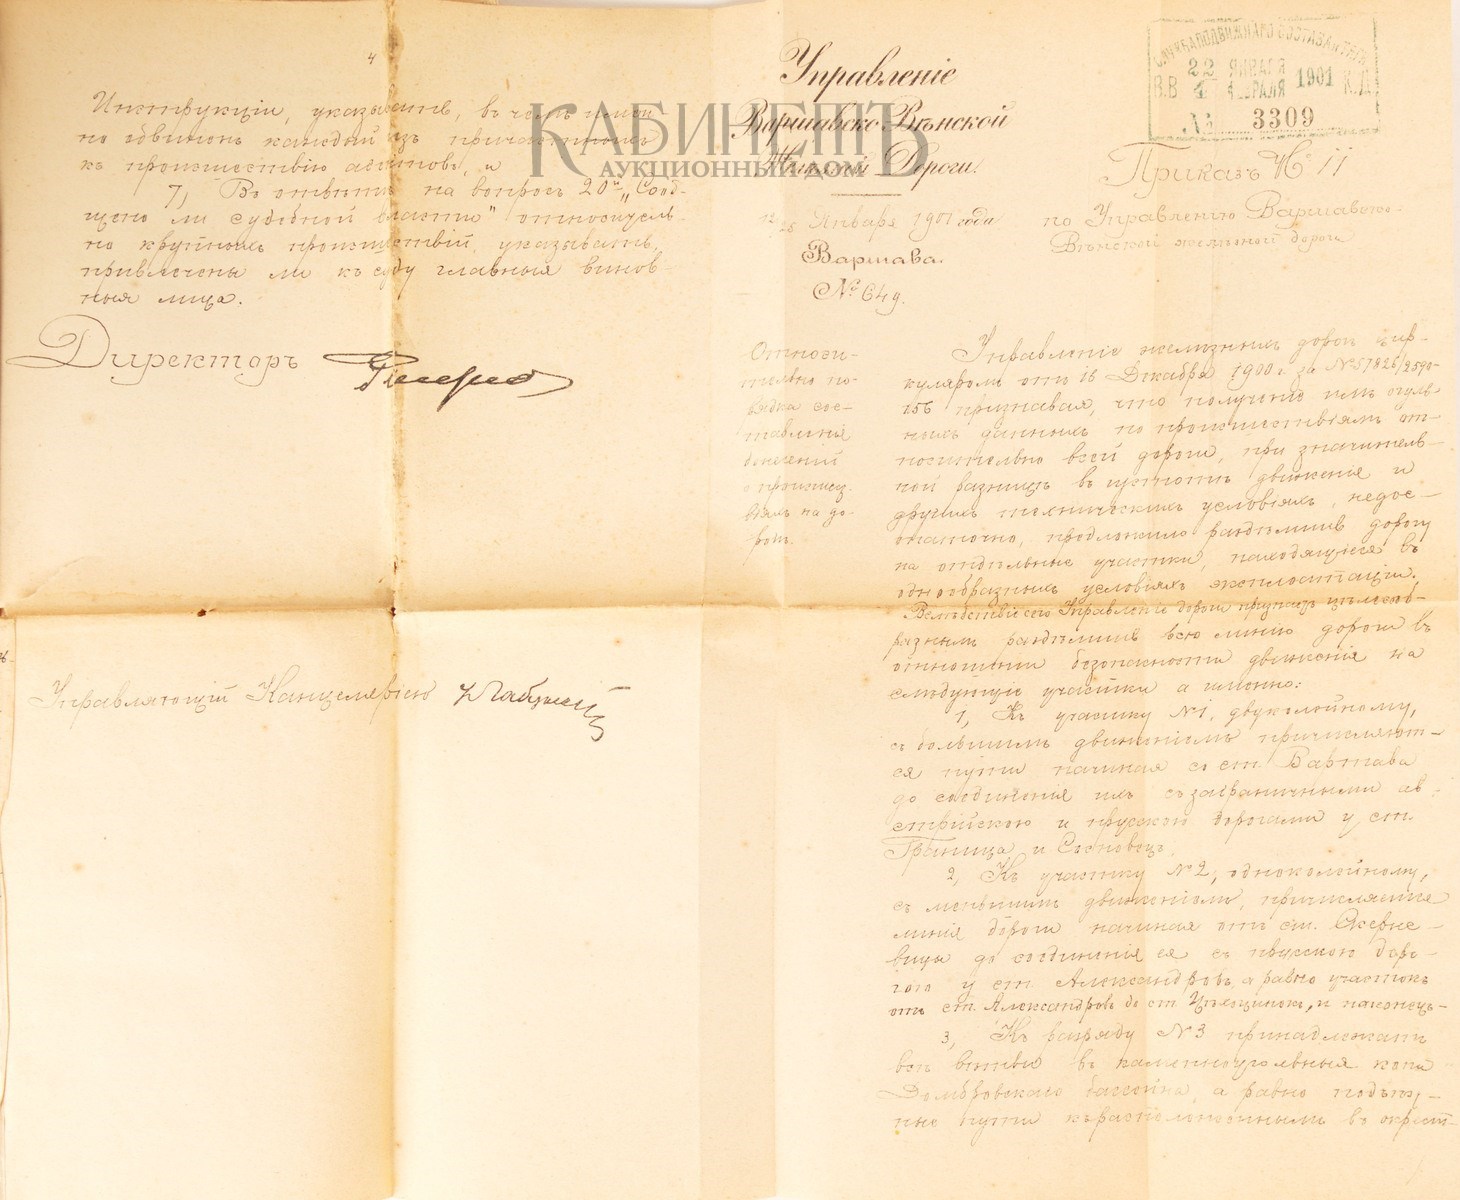 4
Инструкціи, указывать, въ чемъ имен-
но обвиненъ каждый изъ причастныхъ
къ происшествію агентовъ, и
7, Въ отвѣтъ на вопросъ 20й „Сооб-
щено ли судебной власти" относитель-
но крупныхъ происшествій, указывать,
привлечены ли къ суду главныя винов-
ныя лица.
Директоръ
Управляющій Канцеляріею
КАБИНЕТЪ
АУКЦИОННЫЙ ДОМЪ
Управленіе
Варшавско-Вѣнской
Желѣзной Дороги.
12/25 Января 1901 года
Варшава.
№ 649.
СЛУЖБА ПОДВИЖНАГО СОСТАВА И ТЯГИ
В.В 22 ЯНВАРЯ 1901 К.Д
4 ФЕВРАЛЯ
№ 3309
Приказъ № 11
по Управленію Варшавско-
Вѣнской желѣзной дороги
Относи-
тельно по-
рядка сос-
тавленія
донесеній
о происшес-
твіяхъ на до-
рогѣ.
Управленіе желѣзныхъ дорогъ цир-
куляромъ отъ 16 Декабря 1900 г. за № 57826/2590-
признавая, что полученіе имъ огуль-
ныхъ данныхъ по происшествіямъ от-
носительно всей дороги, при значитель-
ной разницѣ въ густотѣ движенія и
другихъ техническихъ условіяхъ, недос-
таточно, предложило раздѣлить дорогу
на отдѣльные участки, находящіеся въ
однообразныхъ условіяхъ эксплоатаціи.
Вслѣдствіе сего Управленіе дороги признало цѣлесооб-
разнымъ раздѣлить всю линію дороги въ
отношеніи безопасности движенія на
слѣдующіе участки а именно:
1, Къ участку №1, двухколейному,
съ большимъ движеніемъ причисляют-
ся пути начиная съ ст. Варшава
до соединенія ихъ съ заграничными ав-
стрійскою и прусскою дорогами у ст.
Граница и Сосновецъ.
2, Къ участку №2, одноколейному,
съ меньшимъ движеніемъ, причисляется
линія дороги начиная отъ ст. Скерне-
вицы до соединенія ея съ прусскою доро-
гою у ст. Александровъ, а равно участокъ
отъ ст. Александровъ до ст. Цѣхоцинокъ, и наконецъ-
3, Къ разряду №3 принадлежатъ
всѣ вѣтви въ каменноугольныя копи
Домбровскаго бассейна, а равно подъѣзд-
ные пути къ расположеннымъ въ окрест-